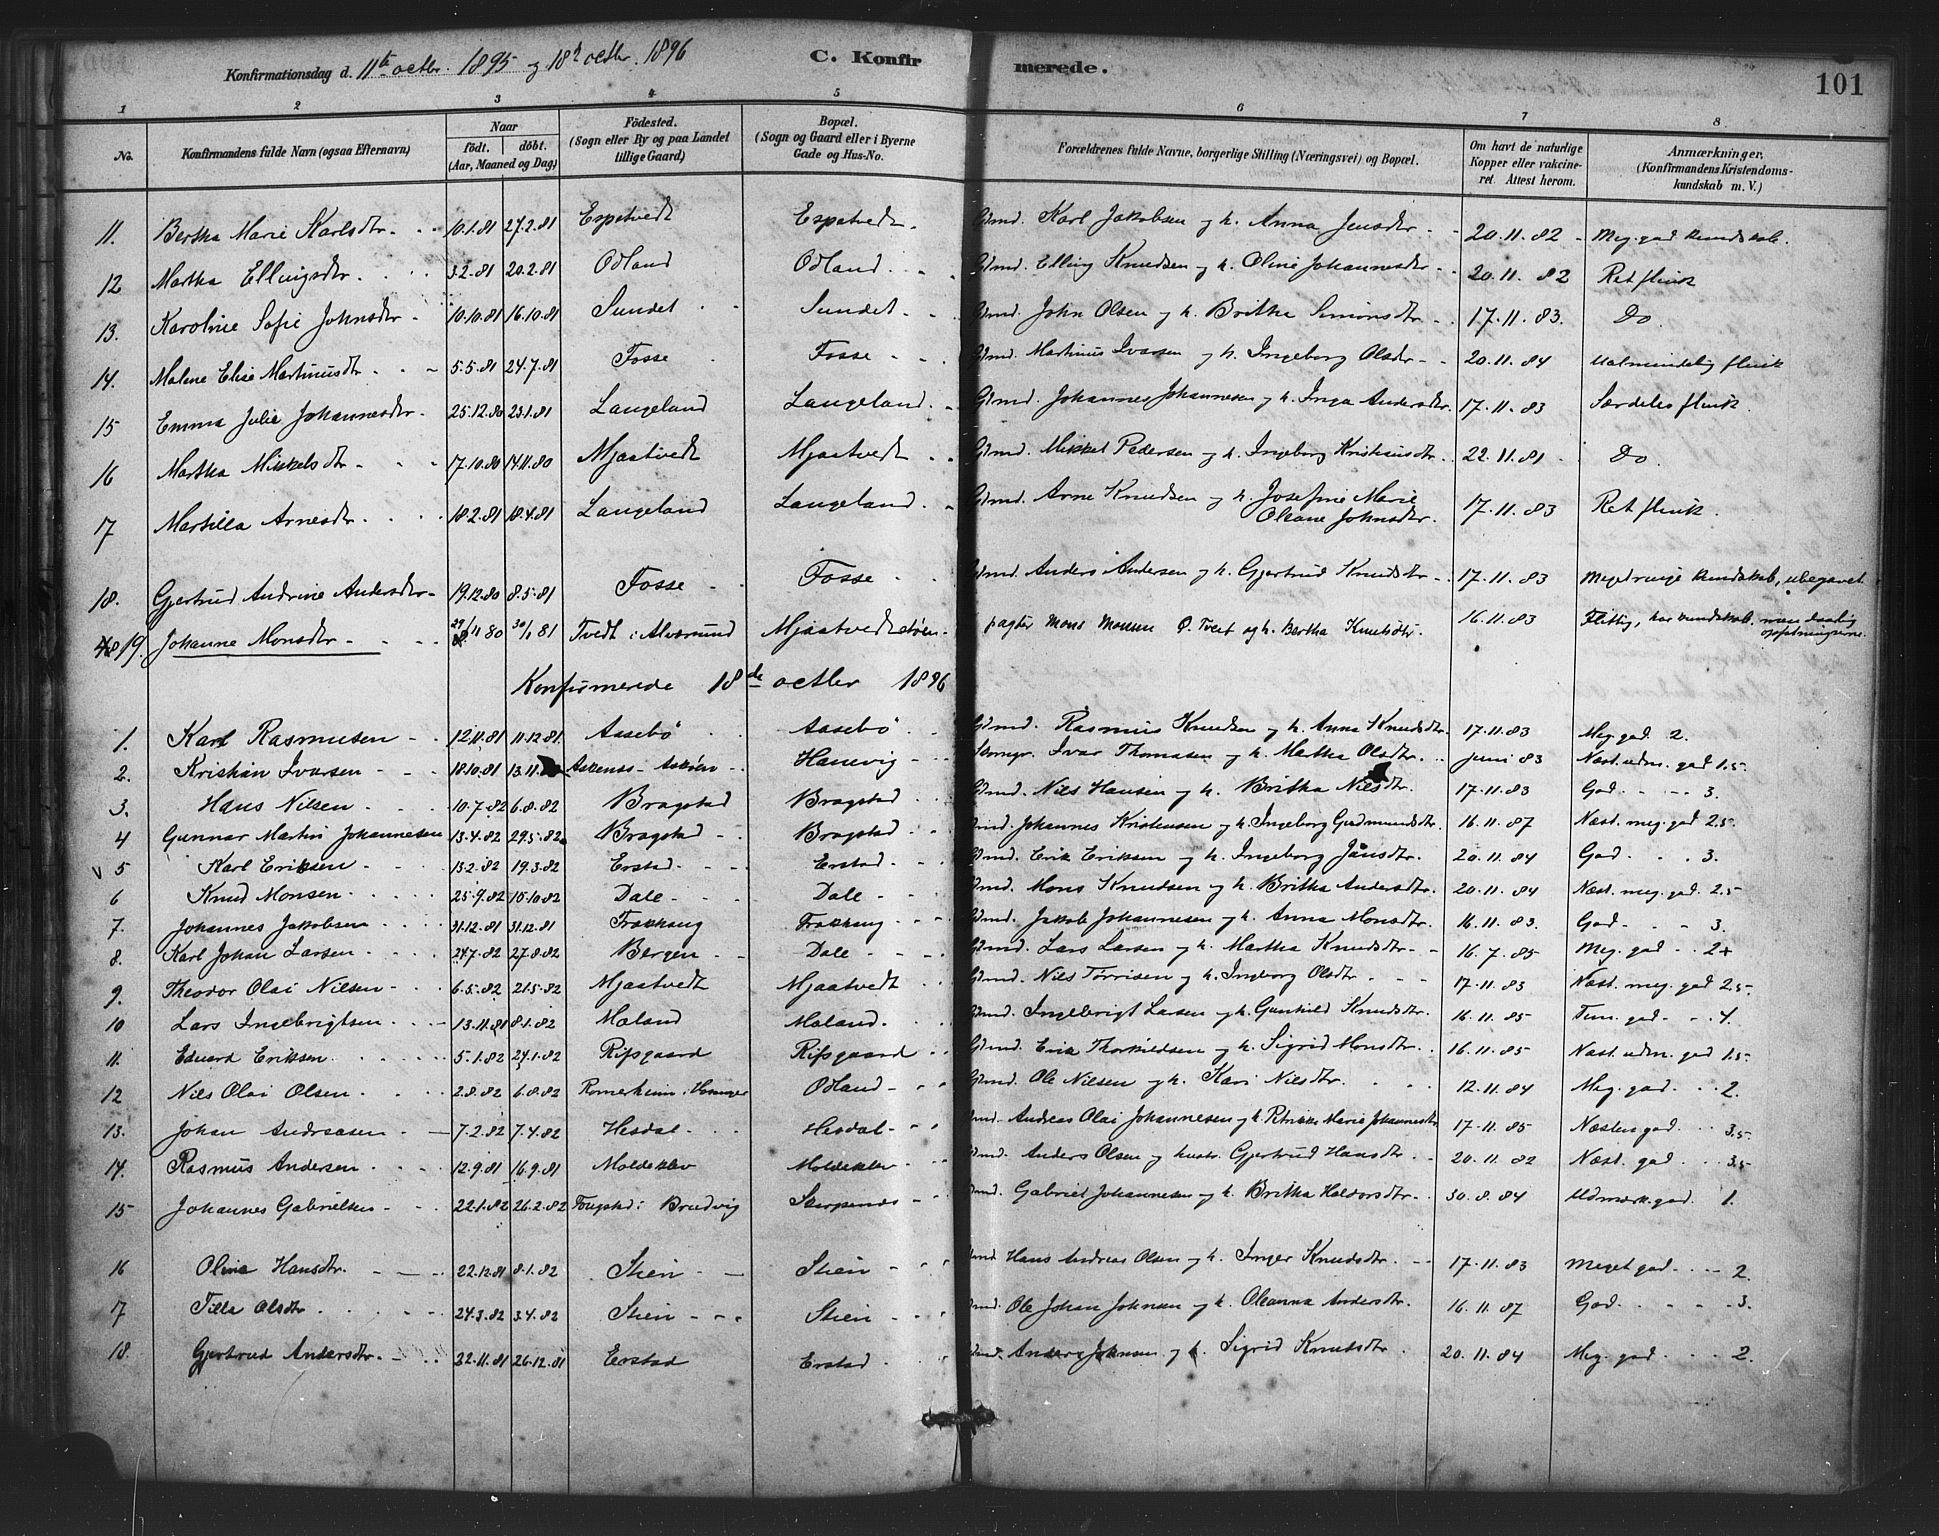 Konfirmationsdag d. 11te octbr. 1895 og 18d octbr. 1896 C. Konfir merede. 101
1 2 3 4 5 6 7 8
No. Konfirmandens fulde Navn (ogsaa Efternavn) Naar födt. döbt. (Aar, Maaned og Dag) Födested. (Sogn eller By og paa Landet tillige Gaard) Bopæl. (Sogn og Gaard eller i Byerne Gade og Hus-No. Forældrenes fulde Navne, borgerlige Stilling (Næringsvei) og Bopæl. Om havt de naturlige Kopper eller vakcineret. Attest herom. Anmærkninger. (Konfirmandens Kristendomskundskab m. V.)
11. Bertha Marie Karlsdtr. 10.1.81 27.2.81 Espetvedt Espetvedt Gdmd. Karl Jakobsen og h. Anna Jensdtr 20.11.82 Meg. god kundskab.
12 Martha Ellingsdtr. 3.2.81 20.2.81 Odland Odland Gdmd. Elling Knudsen og h. Oline Johannesdtr 20.11.82 Ret flink
13. Karoline Sofie Johnsdtr 10.10.81 16.10.81 Sundet Sundet Gdmd. John Olsen og h. Britha Simonsdtr 17.11.83. Do.
14. Malene Elise Martinusdtr 5.5.81 24.7.81 Fosse Fosse Gdmd. Martinus Ivarsen og h. Ingeborg Olsdtr 20.11.84 Ualmindelig flink
15 Emma Julie Johannesdtr 25.12.80 23.1.81 Langeland Langeland Gdmd. Johannes Johannesen og h. Inga Andersdtr. 17.11.83 Særdeles flink.
16 Martha Mikkelsdtr 17.10.80 14.11.80 Mjaatvedt Mjaatvedt Gdmd. Mikkel Pedersen og h. Ingeborg Kristiansdtr. 22.11.81 Do.
17 Martilla Arnesdtr. 18.2.81 18.4.81 Langeland Langeland Gdmd. Arne Knudsen og h. Josefine Marie Oleane Johnsdtr. 17.11.83 Ret flink.
18. Gjertrud Andrine Andersdtr 19.12.80 8.5.81 Fosse Fosse Gdmd. Anders Andersen og h. Gjertrud Knudsdtr 17.11.83 Meget ringe kundskab, ubegavet
19. Johanne Monsdtr 29/11 80 30/1 81 Tvedt i Alversund Mjaatvedt pagter Mons Monsen Ø. Tveit og h. Bertha Knutsdtr. 16.11.83 Flittig, har kundskab, men daarlig
Konfirmerede 18de octbr 1896
1. Karl Rasmusen 12.11.81 11.12.81. Aasebö Aasebö Gdmd. Rasmus Knudsen og h. Anna Knudsdtr. 17.11.83 Meg. god 2.
2. Kristian Ivarsen 18.10.81 13.11. Askenes Askøen Hanevig Ivar Thomasen og h. Martha Olsdtr. juni 83 Næst. udm. god 1.5.
3. Hans Nilsen 10.7.82 6.8.82 Bragstad Bragstad Gdmd. Nils Hansen og h. Britha Nilsdtr. 17.11.83 God 3.
4 Gunnar Martin Johannesen 13.4.82 29.5.82 Bragstad Bragstad Gdmd. Johannes Kristensen og h. Ingeborg Gudmundsdtr. 16.11.87 Næst. meg. god 2.5.
V 5 Karl Eriksen 13.2.82 19.3.82 Erstad Erstad Gdmd. Erik Eriksen og h. Ingeborg Jånsdtr. 20.11.84 God 3.
6 Knud Monsen 25.9.82 10.10.82 Dale Dale Gdmd. Mons Knudsen og h. Britha Andersdtr. 20.11.84 Næst. meg. god 2.5
7. Johannes Jakobsen 31.12.81 31.12.81 Frækhaug Frækhaug Gdmd. Jakob Johannesen og h. Anna Monsdtr 16.11.83. God 3.
8. Karl Johan Larsen 24.7.82 27.8.82 Bergen Dale Gdmd. Lars Larsen og h. Martha Knudsdtr 16.7.85 Meg. god 2+
9. Theodor Olai Nilsen 6.5.82 21.5.82 Mjaatvedt Mjaatvedt Gdmd. Nils Tørrisen og h. Ingeborg Olsdtr 17.11.83 Næst. meg. god 2.5.
10 Lars Ingebrigtsen 13.11.81 8.1.82 Moland Moland. Gdmd. Ingebrigt Larsen og h. Gunhild Knudsdtr. 16.11.85 Tem. god 4.
11. Edvard Eriksen 5.1.82 24.1.82 Rifsgaard Rifsgaard Gdmd. Erik Thorkildsen og h. Sigrid Monsdtr. 16.11.85 Næst. udm. god 1.5
12 Nils Olai Olsen 2.8.82 6.8.82 Romerheim i Hosanger Odland Gdmd. Ole Nilsen og h. Kari Nilsdtr. 12.11.84 Meg. god 2.
13. Johan Andreasen 7.2.82 7.4.82 Hesdal Hesdal Gdmd. Andreas Olai Johannesen og h. Petrikke Marie Johannesdtr 17.11.85 Næsten god 3.5
14. Rasmus Andersen 12.9.81 16.9.81 Moldeklev Moldeklev Gdmd. Anders Olsen og hustr. Gjertrud Hansdtr. 20.11.82 Næst. god 3.5
15 Johannes Gabrielsen 22.1.82 26.2.82 i Bruvig Skarpenes Gdmd. Gabriel Johannesen og h. Britha Haldorsdtr 30.8.84 Udmærk. god. 1.
16 Oline Hansdtr. 22.12.81 8.1.82 Stien Stien Gdmd. Hans Andreas Olsen og h. Inger Knudsdtr. 17.11.83 Meget god 2.
17 Tilla Olsdtr 24.3.82 3.4.82 Stien Stien Gdmd. Ole Johan Johnsen og h. Oleanna Andersdtr. 16.11.87 God 3.
18. Gjertrud Andersdtr. 22.11.81 26.12.81 Erstad Erstad Gdmd. Anders Johnsen og h. Sigrid Knudsdtr 20.11.84 Meg. god 2.